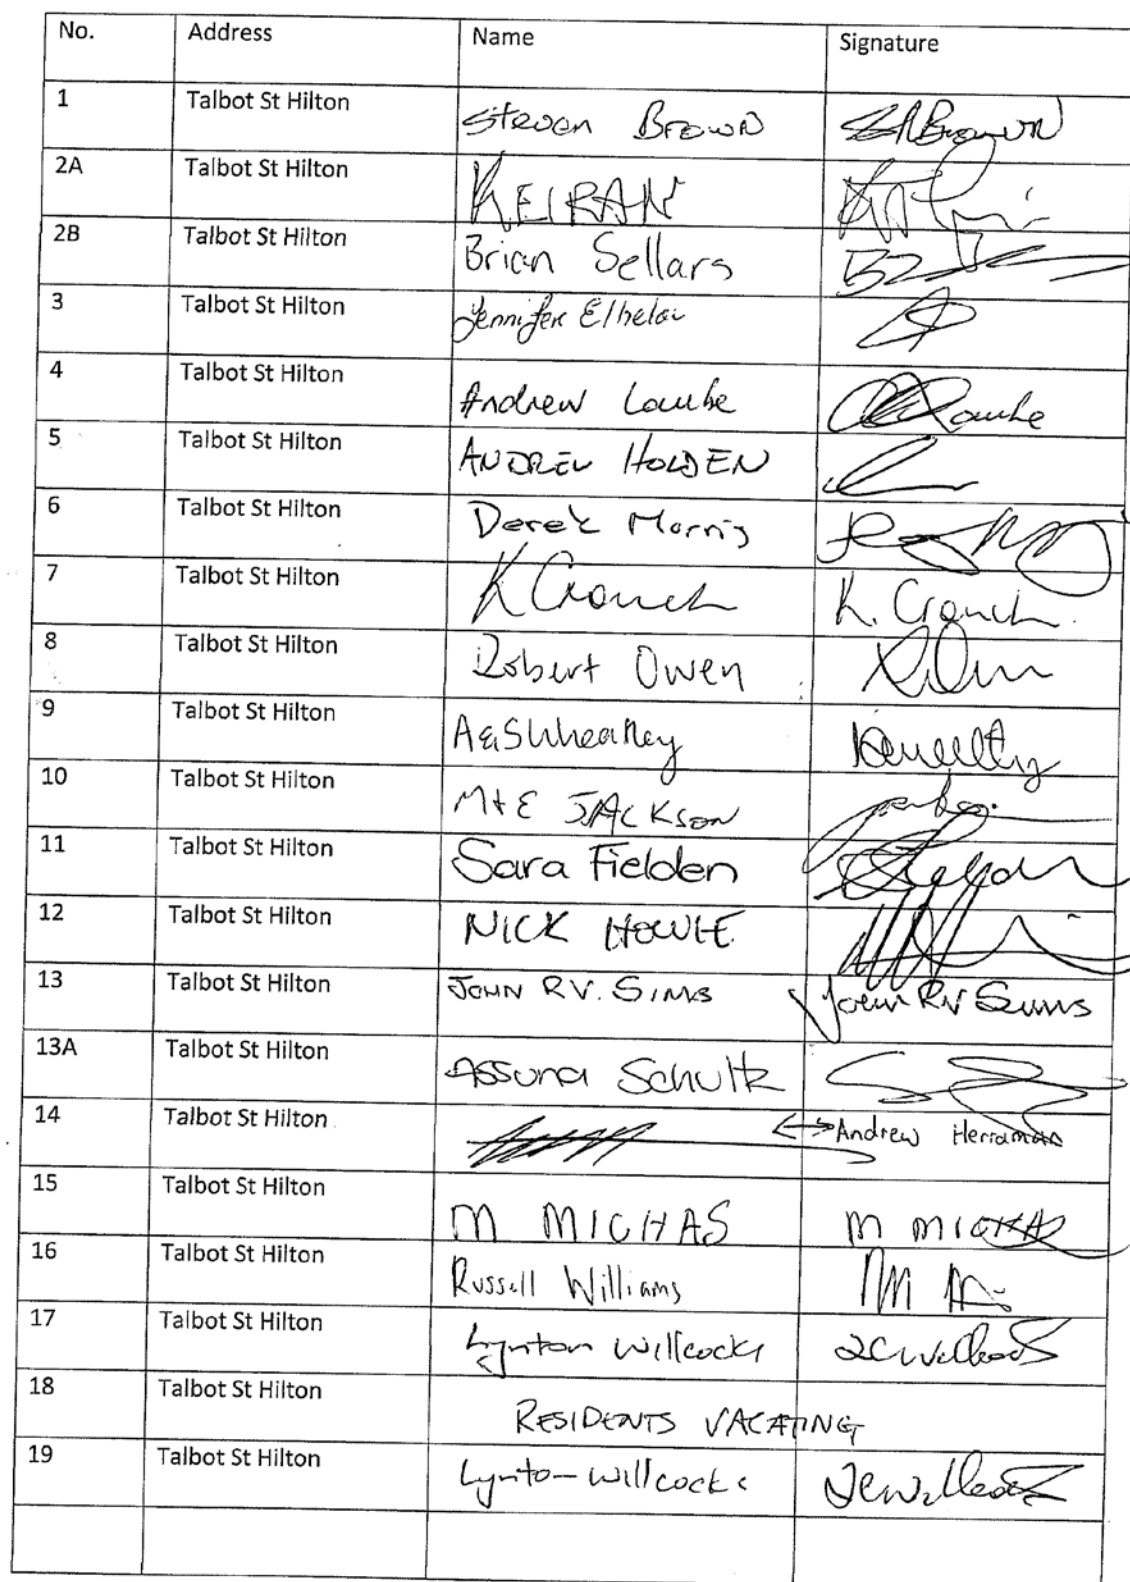 No. Address Name Signature
1 Talbot St Hilton Steven Brown SABrown
2A Talbot St Hilton KEIRAN
2B Talbot St Hilton Brian Sellars
3 Talbot St Hilton Jennifer
4 Talbot St Hilton Andrew
5 Talbot St Hilton ANDREW HOLDEN
6 Talbot St Hilton Derek Morris
7 Talbot St Hilton K Crouch K. Crouch
8 Talbot St Hilton Robert Owen
9 Talbot St Hilton A&S Wheatley
10 Talbot St Hilton M+E JACKSON
11 Talbot St Hilton Sara Fielden
12 Talbot St Hilton NICK HOWIE
13 Talbot St Hilton JOHN RV. SIMS John RV Sims
13A Talbot St Hilton Assuna Schultz
14 Talbot St Hilton Andrew Herraman
15 Talbot St Hilton M MICHAS M MICHAS
16 Talbot St Hilton Russell Williams
17 Talbot St Hilton Lynton Willcocks
18 Talbot St Hilton RESIDENTS VACATING
19 Talbot St Hilton Lynton Willcocks